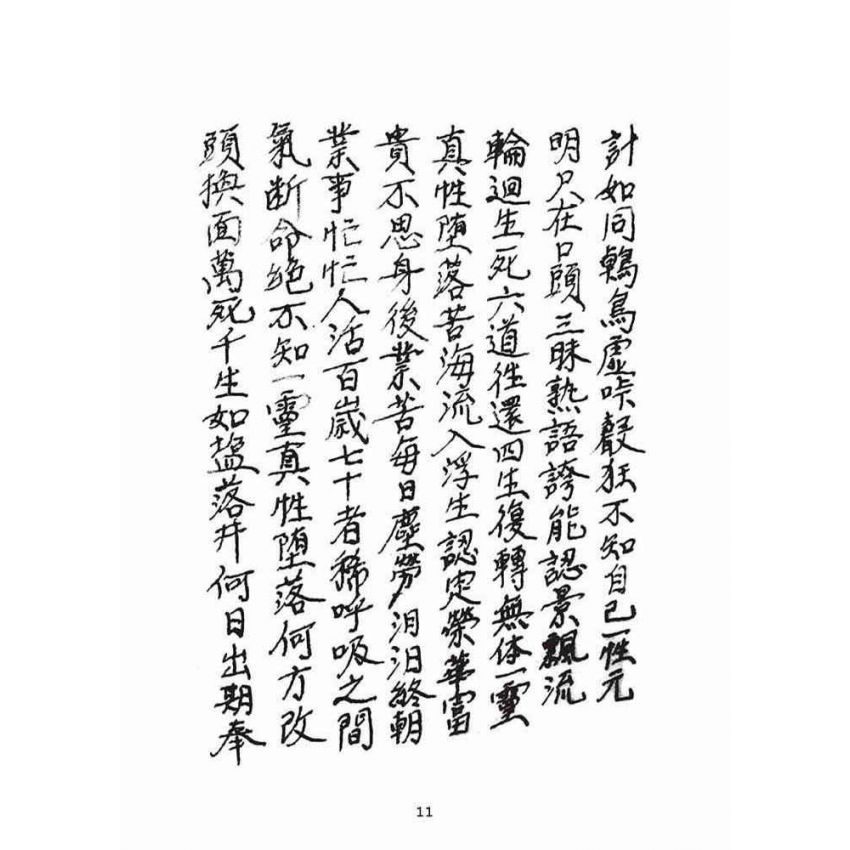 計如同鶴鳥虛哄轂狂不知自己一性元
明只在口頭三昧熟語誇能認景飄流
輪迴生死六道往還四生復轉無体一靈
真性墮落苦海流入浮生認定榮華富
貴不思身後業苦每日塵勞汨汨終朝
業事忙忙人活百歲七十者稀呼吸之間
氣断命絶不知一靈真性墮落何方改
頭換面萬死千生如塩落井何日出期奉
11